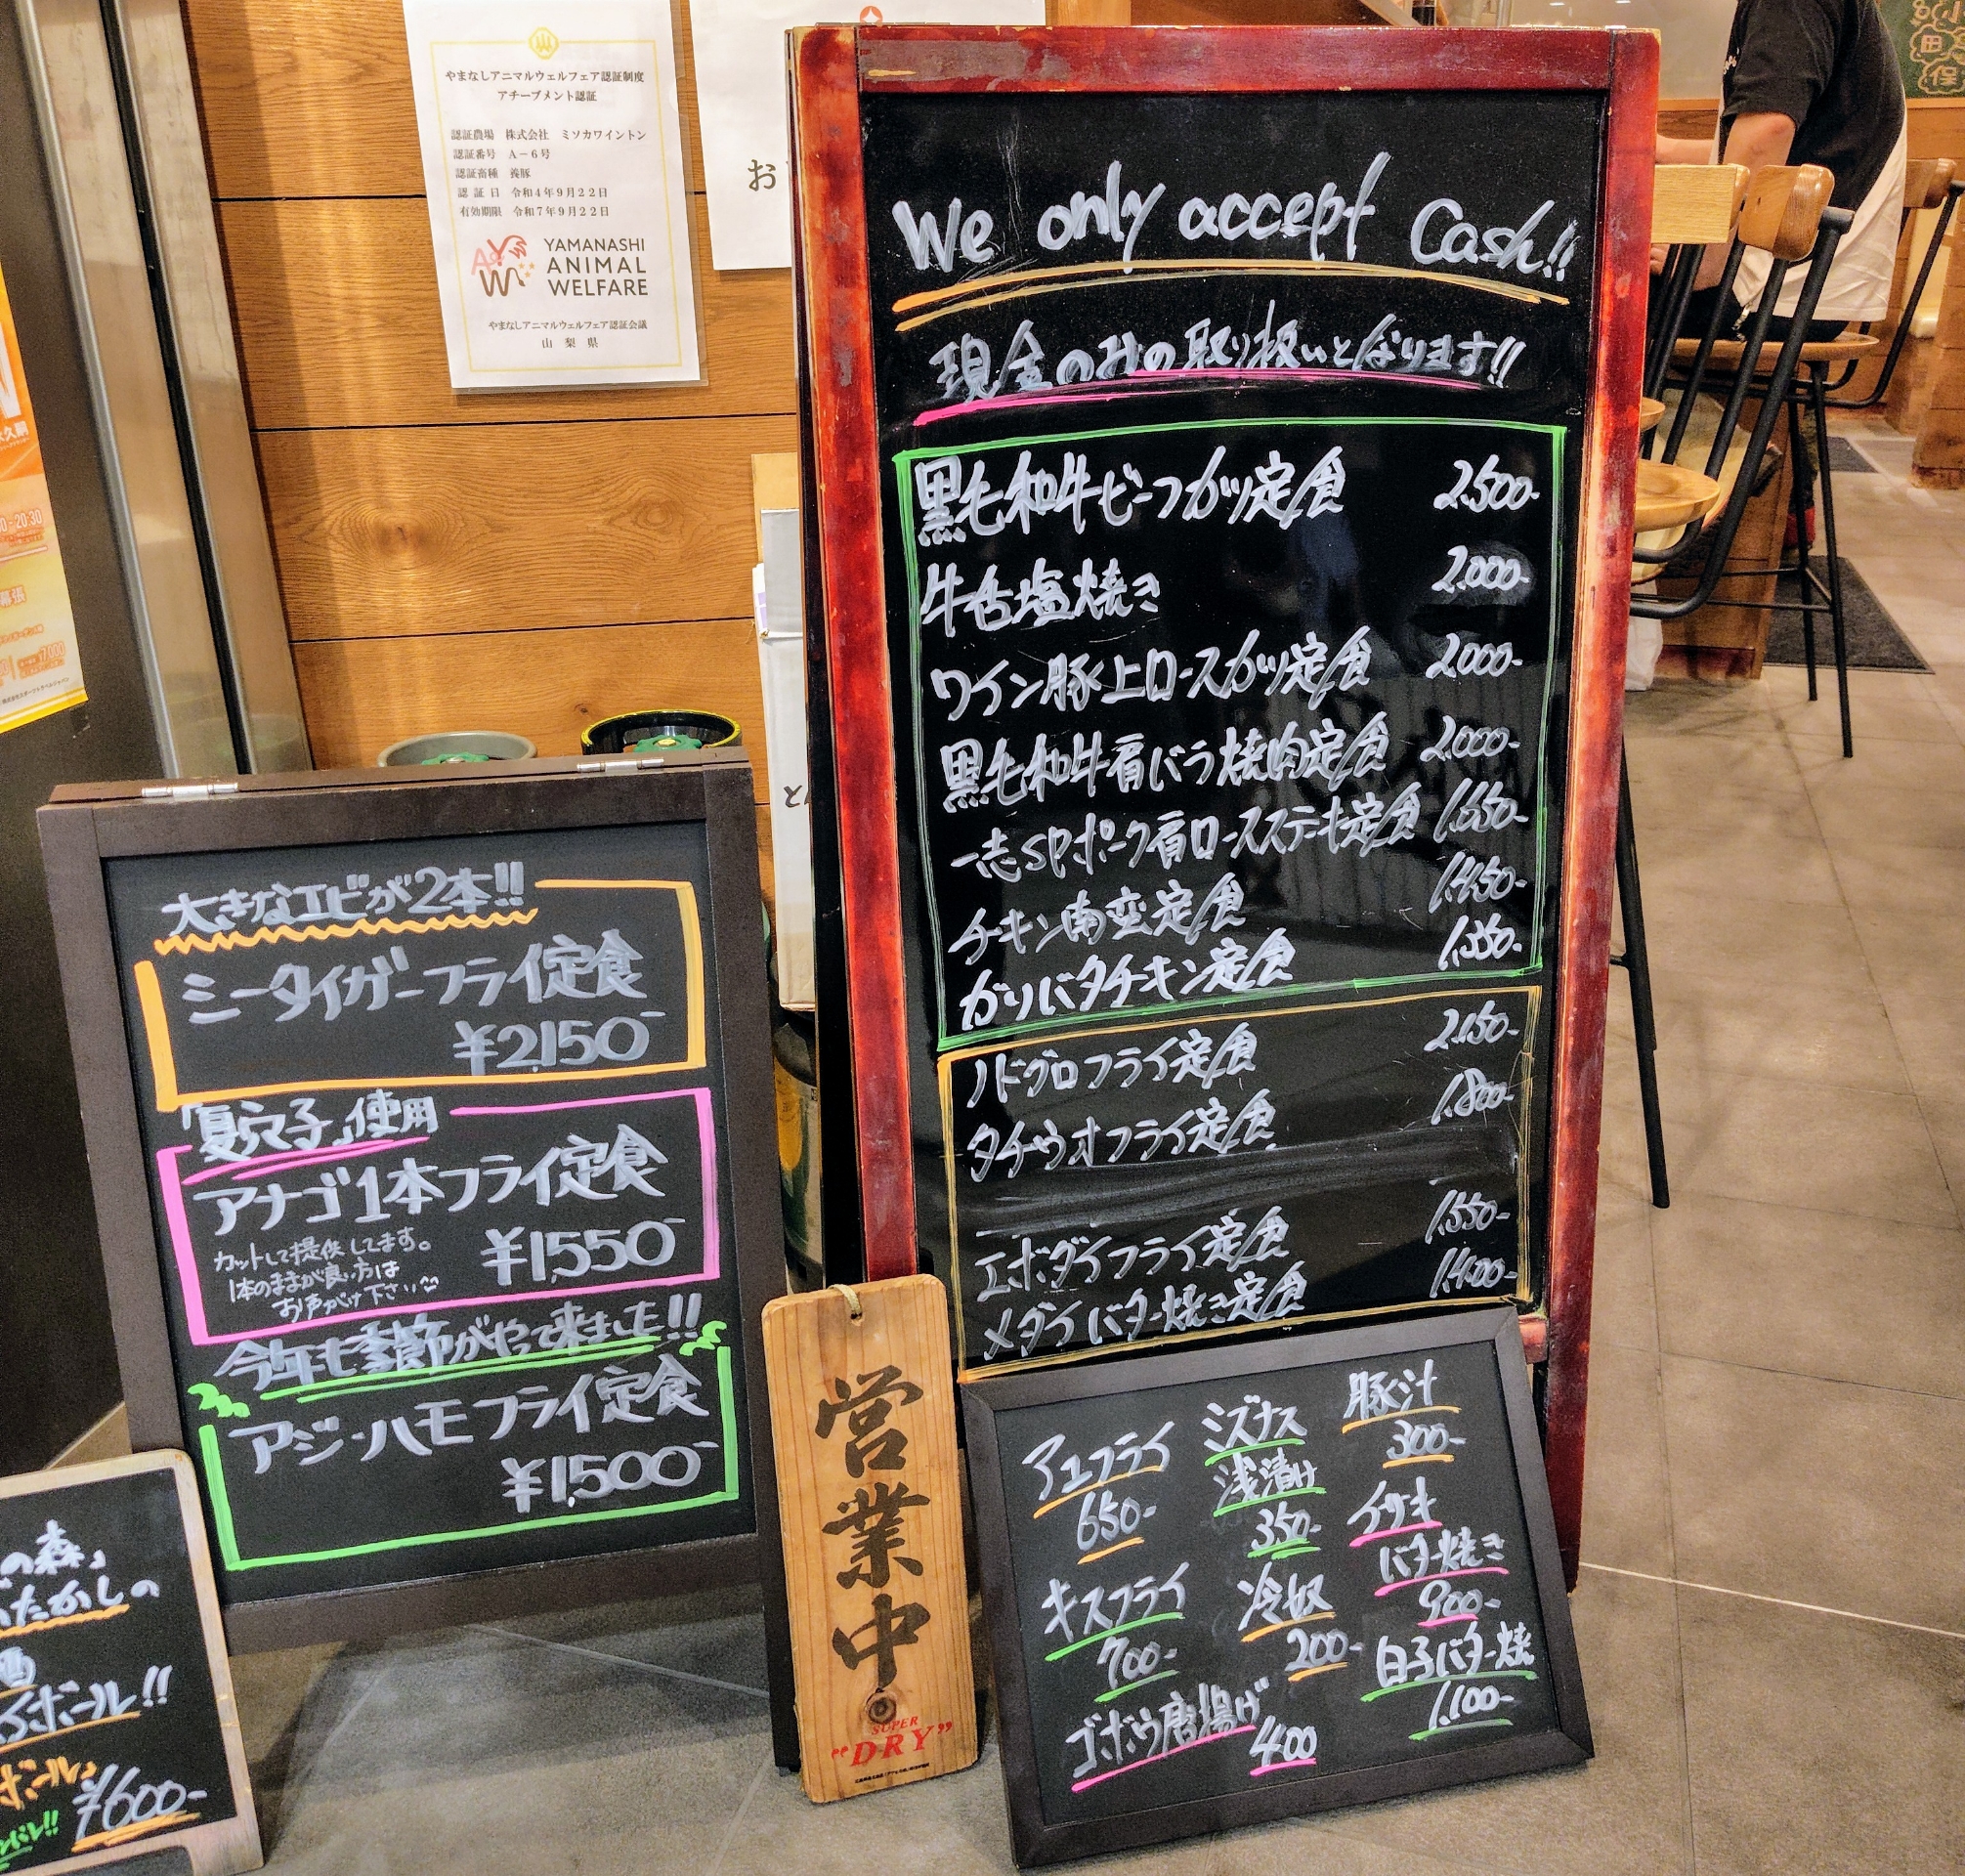 やまなしアニマルウェルフェア認証制度
アチーブメント認証
認証農場 株式会社 ミソカワイントン
認証番号 A-6号
認証畜種 養豚
認証日 令和4年9月22日
有効期限 令和7年9月22日
AYW
YAMANASHI
ANIMAL
WELFARE
やまなしアニマルウェルフェア認証会議
山梨県
お
We only accept Cash!!
現金のみの取り扱いとなります!!
黒毛和牛ビーフカツ定食 2.500-
牛舌塩焼き 2.000-
ワイン豚上ロースカツ定食 2.000-
黒毛和牛肩バラ焼肉定食 2.000-
一志SPポーク肩ロースステーキ定食 1.650-
チキン南蛮定食 1.450-
ガリバタチキン定食 1.350-
ノドグロフライ定食 2.150-
タチウオフライ定食 1.800-
エボダイフライ定食 1.550-
メダイバター焼き定食 1.400-
大きなエビが2本!!
ミータイガーフライ定食
¥2,150-
「夏穴子」使用
アナゴ1本フライ定食
カットして提供してます。
1本のままが良い方は
お声がけ下さい
¥1,550-
今年も季節がやって来ました!!
アジ・ハモフライ定食
¥1,500-
営業中
SUPER
"DRY"
アユフライ
650-
キスフライ
700-
ゴボウ唐揚げ
400
ミズナス
浅漬け
350-
冷奴
200-
豚汁
300-
イサキ
バター焼き
900-
白子バター焼
1,100-
の森」
たかしの
酒
ボール!!
ボール」
¥600-